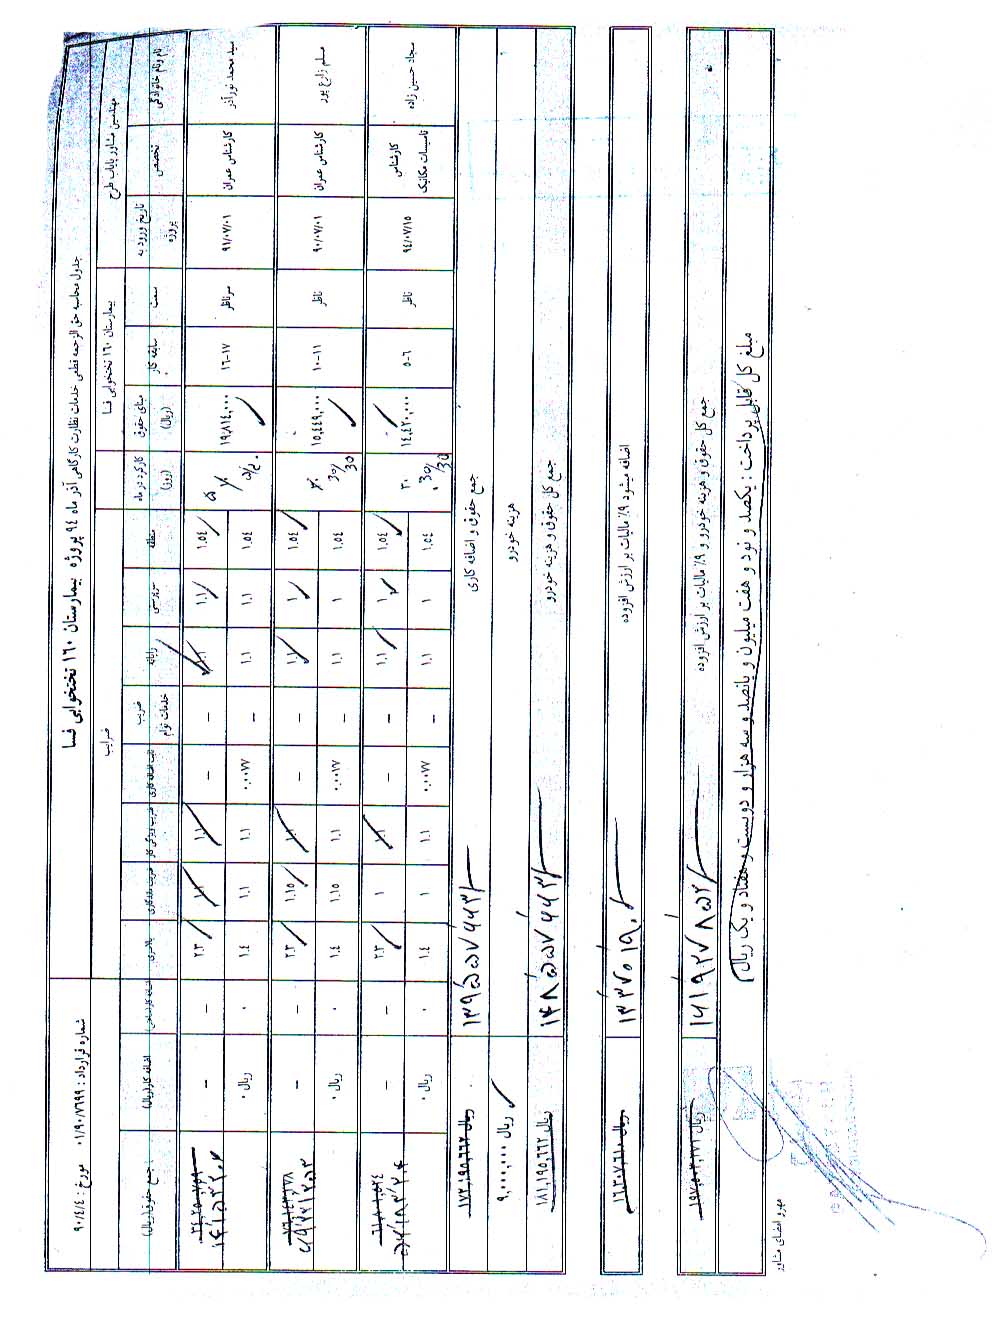 جدول محاسبه حق الزحمه قطعی خدمات نظارت کارگاهی آذر ماه ۹۴ پروژه بیمارستان ۱۶۰ تختخوابی فسا
مهندسین مشاور پایاب طرح
بیمارستان ۱۶۰ تختخوابی فسا
ضرایب
شماره قرارداد : ۰۱/۹۰/۷۶۹۹ مورخ : ۹۰/۴/۴
نام ونام خانوادگی
تخصص
تاریخ ورود به پروژه
سمت
سابقه کار
مبنای حقوق (ریال)
کارکرد در ماه (روز)
منطقه
سرپرستی
رایانه
ضریب خدمات توام
بالاسری
اضافه کار(ریال)
جمع حقوق(ریال)
سید محمد نورآذر کارشناس عمران ۹۱/۰۷/۰۱ سرناظر ۱۶-۱۷ ۱۹,۸۱۴,۰۰۰ ۱.۵۴ ۱.۱ ۱.۱ - - ۱.۱ ۱.۱ ۲.۳ - -
۱.۵۴ ۱.۱ ۱.۱ - ۰.۰۰۷۷ ۱.۱ ۱.۱ ۱.۴ ۰ ۰ ریال
مسلم زارع پور کارشناس عمران ۹۰/۰۷/۰۱ ناظر ۱۰-۱۱ ۱۵,۴۴۹,۰۰۰ ۱.۵۴ ۱ ۱.۱ - - ۱.۱ ۱.۱۵ ۲.۳ - -
۱.۵۴ ۱ ۱.۱ - ۰.۰۰۷۷ ۱.۱ ۱.۱۵ ۱.۴ ۰ ۰ ریال
سجاد حسین زاده کارشناس تاسیسات مکانیک ۹۴/۰۷/۱۵ ناظر ۵-۶ ۱۴,۴۲۰,۰۰۰ ۳۰ ۱.۵۴ ۱ ۱.۱ - - ۱.۱ ۱ ۲.۳ - -
۱.۵۴ ۱ ۱.۱ - ۰.۰۰۷۷ ۱.۱ ۱ ۱.۴ ۰ ۰ ریال
جمع حقوق و اضافه کاری ۱۳۹۵۵۷۶۶۳ ریال ۱۷۲,۱۹۵,۶۶۲
هزینه خودرو ریال ۹,۰۰۰,۰۰۰
جمع کل حقوق و هزینه خودرو ۱۴۸۵۵۷۶۶۳ ریال ۱۸۱,۱۹۵,۶۶۲
اضافه میشود ۹٪ مالیات بر ارزش افزوده ۱۳۳۷۰۱۹۰ ریال ۱۶,۳۰۷,۶۱۰
جمع کل حقوق و هزینه خودرو و ۹٪ مالیات بر ارزش افزوده ۱۶۱۹۲۷۸۵۳ ریال ۱۹۷,۵۰۳,۲۷۱
مبلغ کل قابل پرداخت : یکصد و نود و هفت میلیون و پانصد و سه هزار و دویست و هفتاد و یک ریال
مهر و امضای مشاور